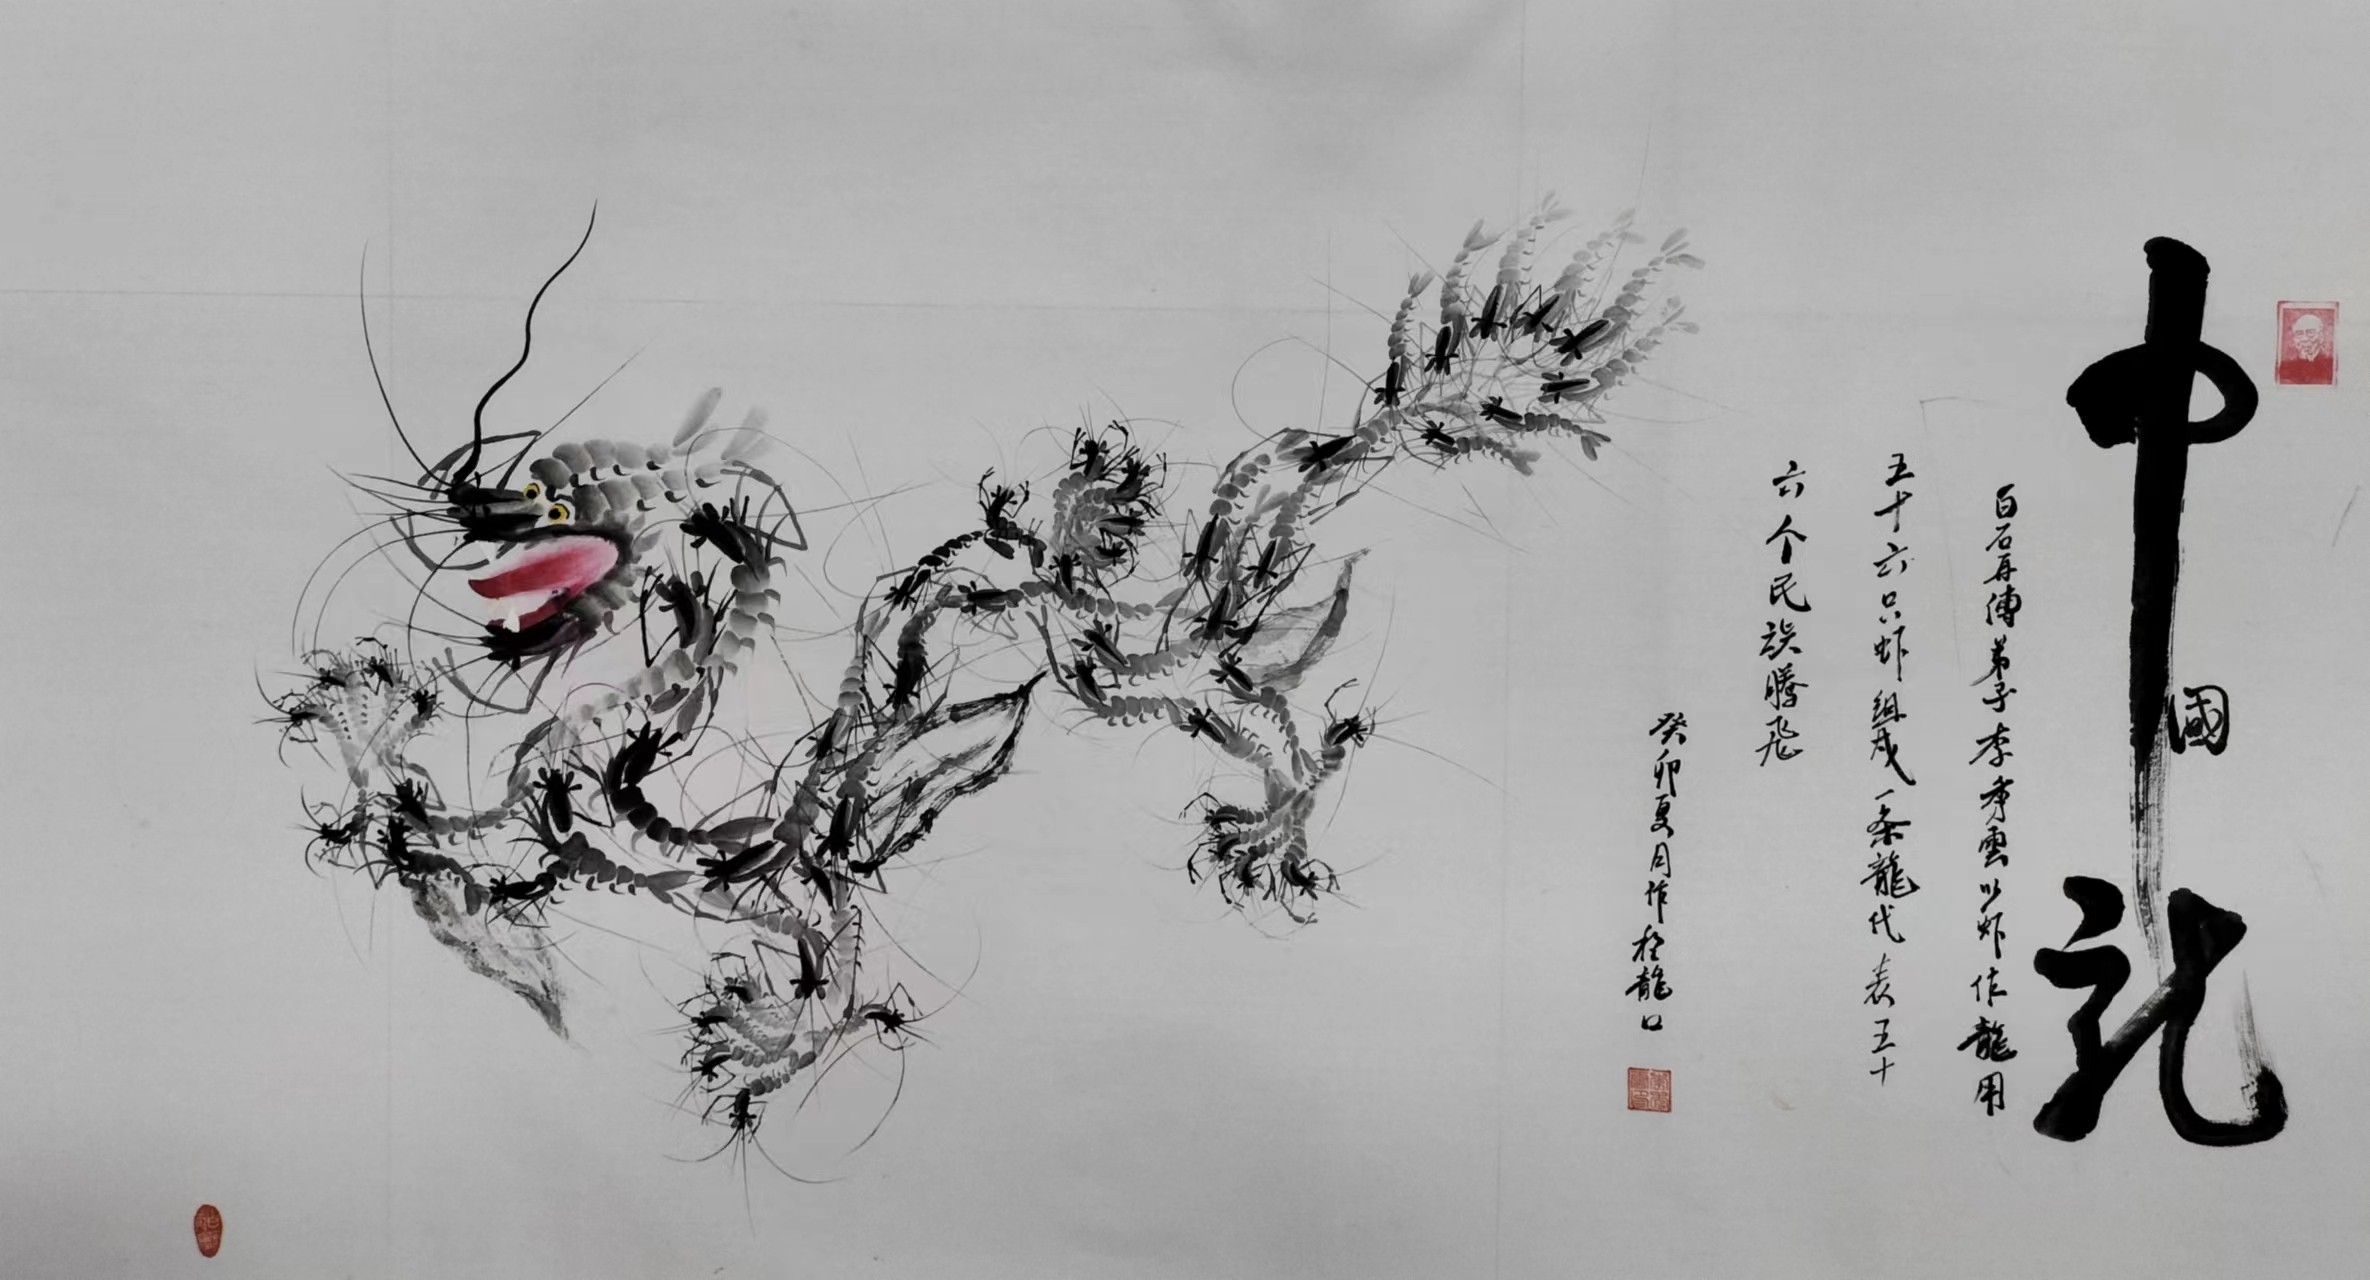 中國龙
百石再傅弟子李秀雲以虾作龍用
五十六只虾组成一条龍代表五十
六个民族腾飞
癸卯夏月作於龍口